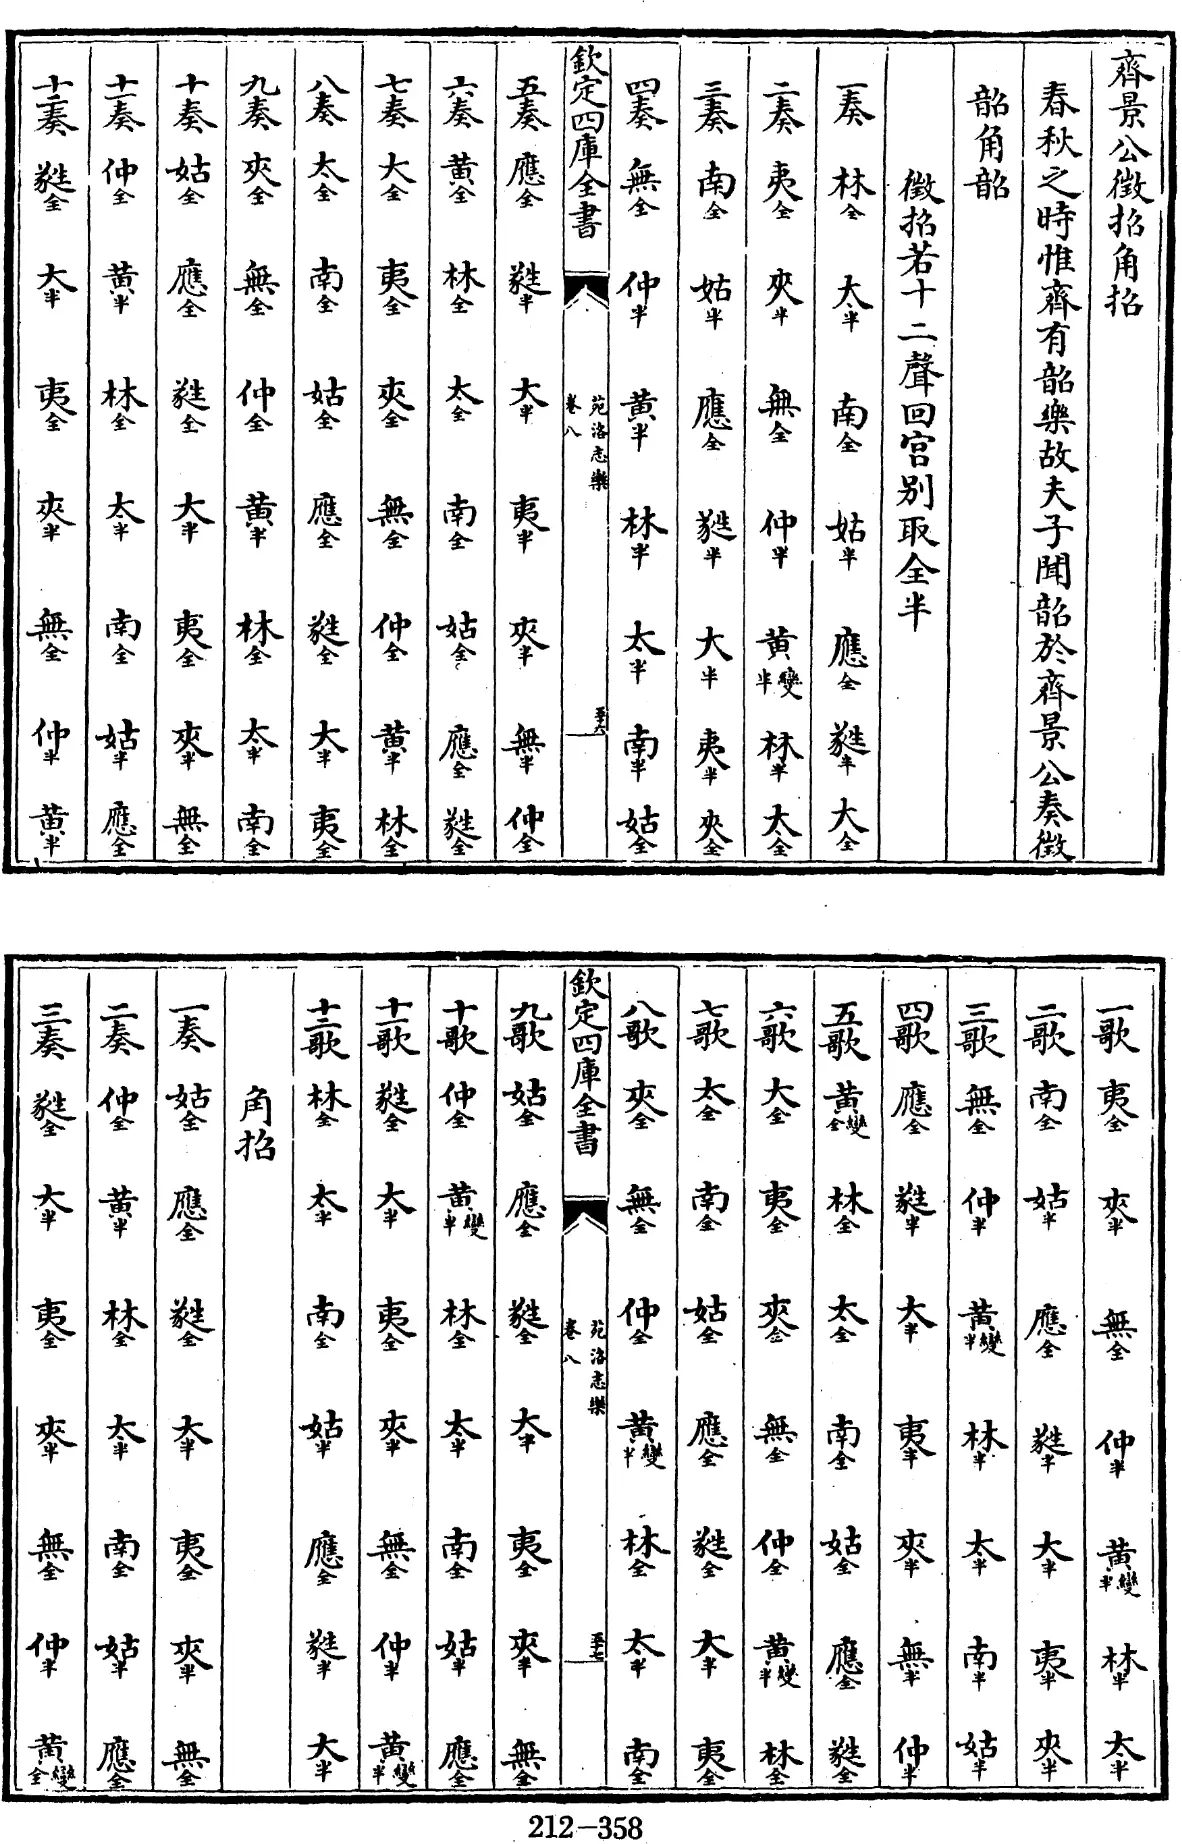 齊景公徵招角招
春秋之時惟齊有韶樂故夫子聞韶於齊景公奏徵
韶角韶
徵招若十二聲回宮别取全半
一奏 林全 太半 南全 姑半 應全 蕤半 大全
二奏 夷全 夾半 無全 仲半 黄變半 林半 太全
三奏 南全 姑半 應全 蕤半 大半 夷半 夾全
四奏 無全 仲半 黄半 林半 太半 南半 姑全
欽定四庫全書
苑洛志樂
卷八
五十六
五奏 應全 蕤半 大半 夷半 夾半 無半 仲全
六奏 黄全 林全 太全 南全 姑全 應全 蕤全
七奏 大全 夷全 夾全 無全 仲全 黄半 林全
八奏 太全 南全 姑全 應全 蕤全 大半 夷全
九奏 夾全 無全 仲全 黄半 林全 太半 南全
十奏 姑全 應全 蕤全 大半 夷全 夾半 無全
十一奏 仲全 黄半 林全 太半 南全 姑半 應全
十二奏 蕤全 大半 夷全 夾半 無全 仲半 黄半
一歌 夷全 夾半 無全 仲半 黄變半 林半 太半
二歌 南全 姑半 應全 蕤半 大半 夷半 夾半
三歌 無全 仲半 黄變半 林半 太半 南半 姑半
四歌 應全 蕤半 大半 夷半 夾半 無半 仲半
五歌 黄變全 林全 太全 南全 姑全 應全 蕤全
六歌 大全 夷全 夾全 無全 仲全 黄變半 林全
七歌 太全 南全 姑全 應全 蕤全 大半 夷全
八歌 夾全 無全 仲全 黄變半 林全 太半 南全
欽定四庫全書
苑洛志樂
卷八
五十七
九歌 姑全 應全 蕤全 大半 夷全 夾半 無全
十歌 仲全 黄變半 林全 太半 南全 姑半 應全
十一歌 蕤全 大半 夷全 夾半 無全 仲半 黄變半
十二歌 林全 太半 南全 姑半 應全 蕤半 大半
角招
一奏 姑全 應全 蕤全 大半 夷全 夾半 無全
二奏 仲全 黄半 林全 太半 南全 姑半 應全
三奏 蕤全 大半 夷全 夾半 無全 仲半 黄變全
212-358